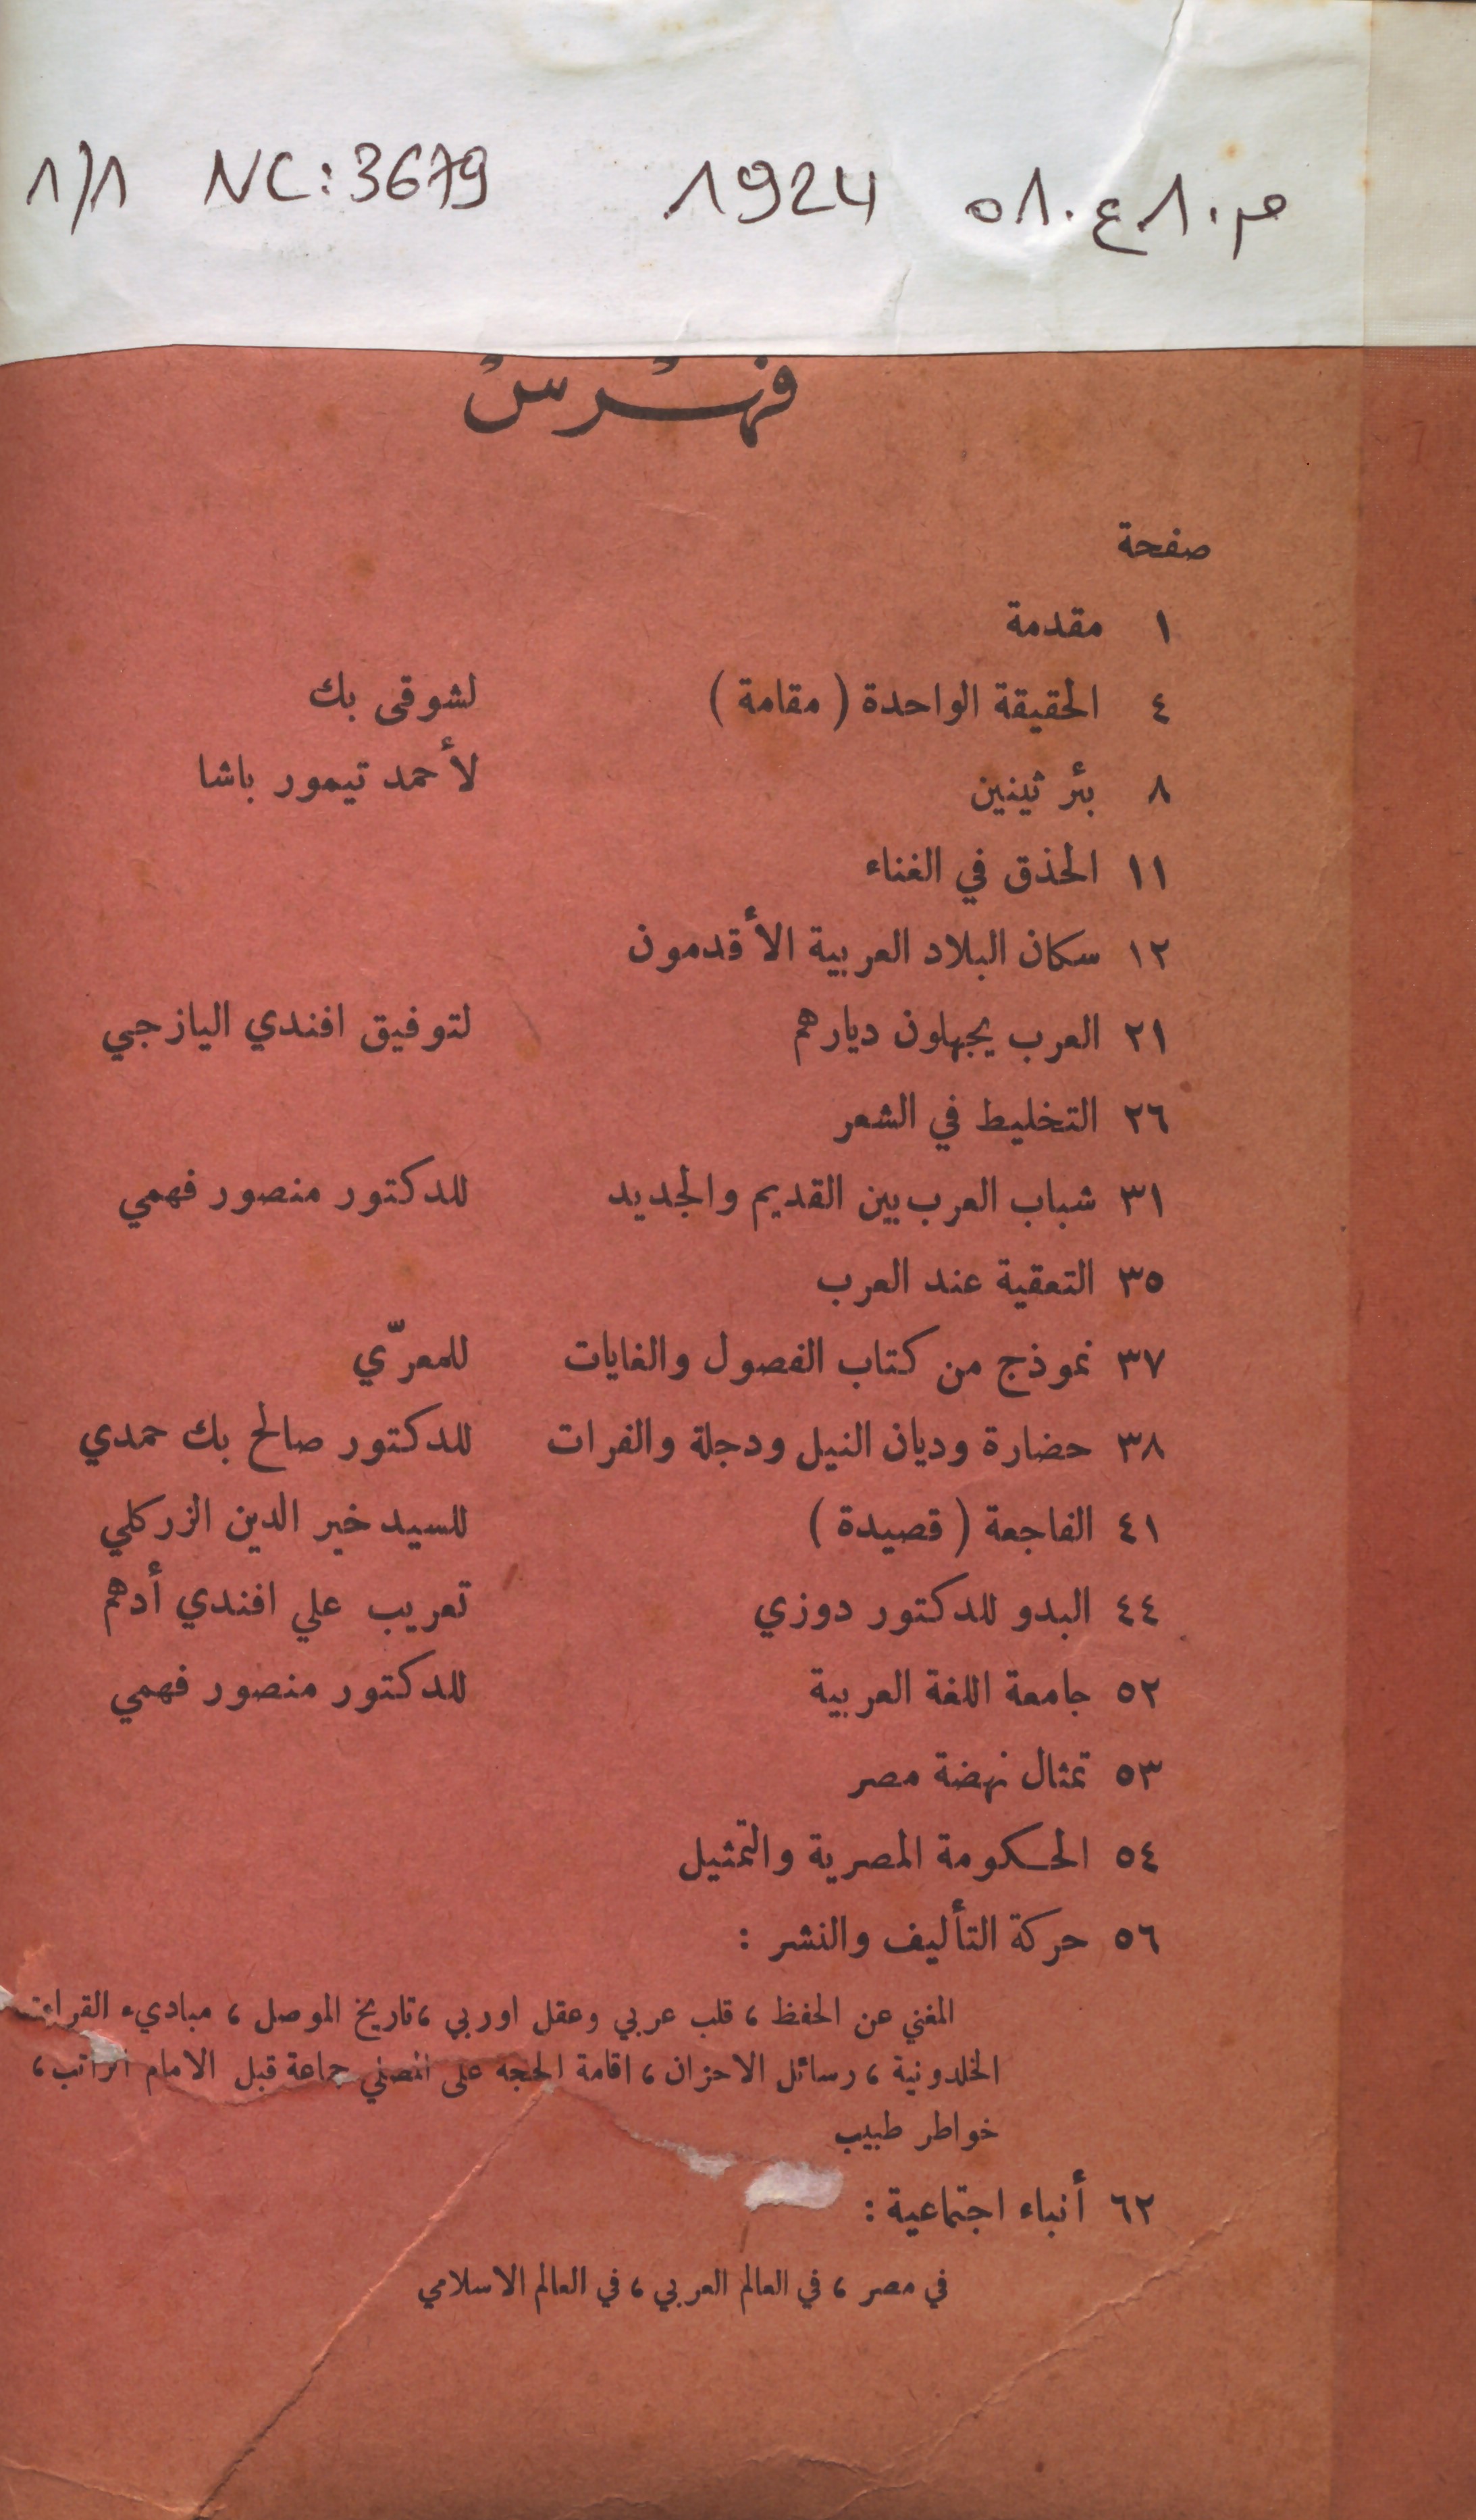 م.١.ع.٥١ 1924 NC:3679 1/1
فهرس
صفحة
١ مقدمة
٤ الحقيقة الواحدة ( مقامة ) لشوقي بك
٨ بئر ثينين لأحمد تيمور باشا
١١ الحذق في الغناء
١٢ سكان البلاد العربية الأقدمون
٢١ العرب يجهلون ديارهم لتوفيق افندي اليازجي
٢٦ التخليط في الشعر
٣١ شباب العرب بين القديم والجديد للدكتور منصور فهمي
٣٥ التعقية عند العرب
٣٧ نموذج من كتاب الفصول والغايات للمعرّي
٣٨ حضارة وديان النيل ودجلة والفرات للدكتور صالح بك حمدي
٤١ الفاجعة ( قصيدة ) للسيد خير الدين الزركلي
٤٤ البدو للدكتور دوزي تعريب علي افندي أدهم
٥٢ جامعة اللغة العربية للدكتور منصور فهمي
٥٣ تمثال نهضة مصر
٥٤ الحكومة المصرية والتمثيل
٥٦ حركة التأليف والنشر :
المغني عن الحفظ ، قلب عربي وعقل اوربي ، تاريخ الموصل ، مباديء القراءة
الخلدونية ، رسائل الاحزان ، اقامة الحجه على المصلي جماعة قبل الامام الراتب ،
خواطر طبيب
٦٢ أنباء اجتماعية :
في مصر ، في العالم العربي ، في العالم الاسلامي